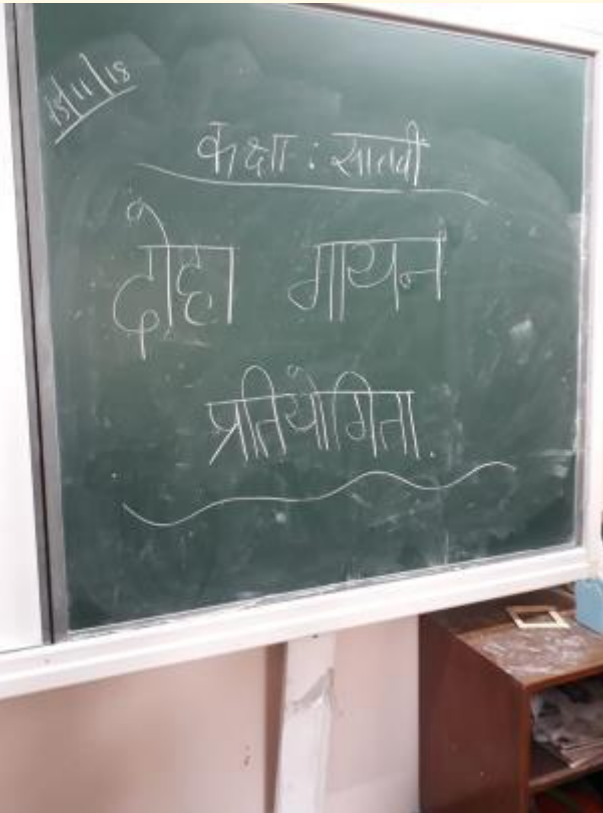 15/11/18
कक्षा : सातवीं
दोहा गायन
प्रतियोगिता.